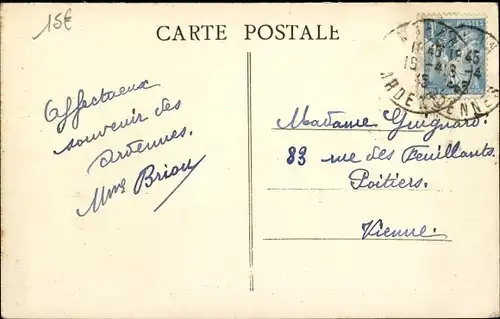 15€
CARTE POSTALE
Affectueux
souvenir des
Ardennes.
Mme Brion
POSTES
1945 1945
ARDENNES
Madame Guignard.
83 rue des Feuillants.
Poitiers.
Vienne.